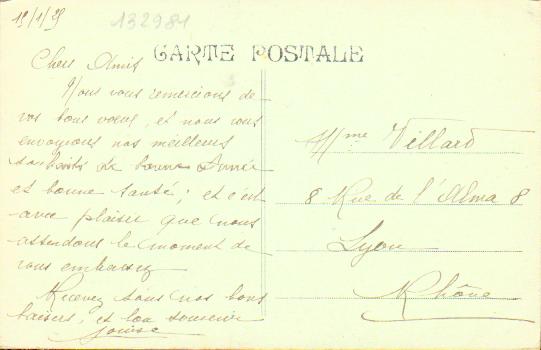 19/1/29
132981
CARTE POSTALE
Chers Amis
Nous vous remercions de
vos bons vœux, et nous vous
envoyons nos meilleurs
souhaits de bonne Année
et bonne santé ; et c'est
avec plaisir que nous
attendons le moment de
vous embrassez
Recevez tous nos bons
baisers, et bon souvenir
Mme Villard
8 Rue de l'Alma 8
Lyon
Rhône